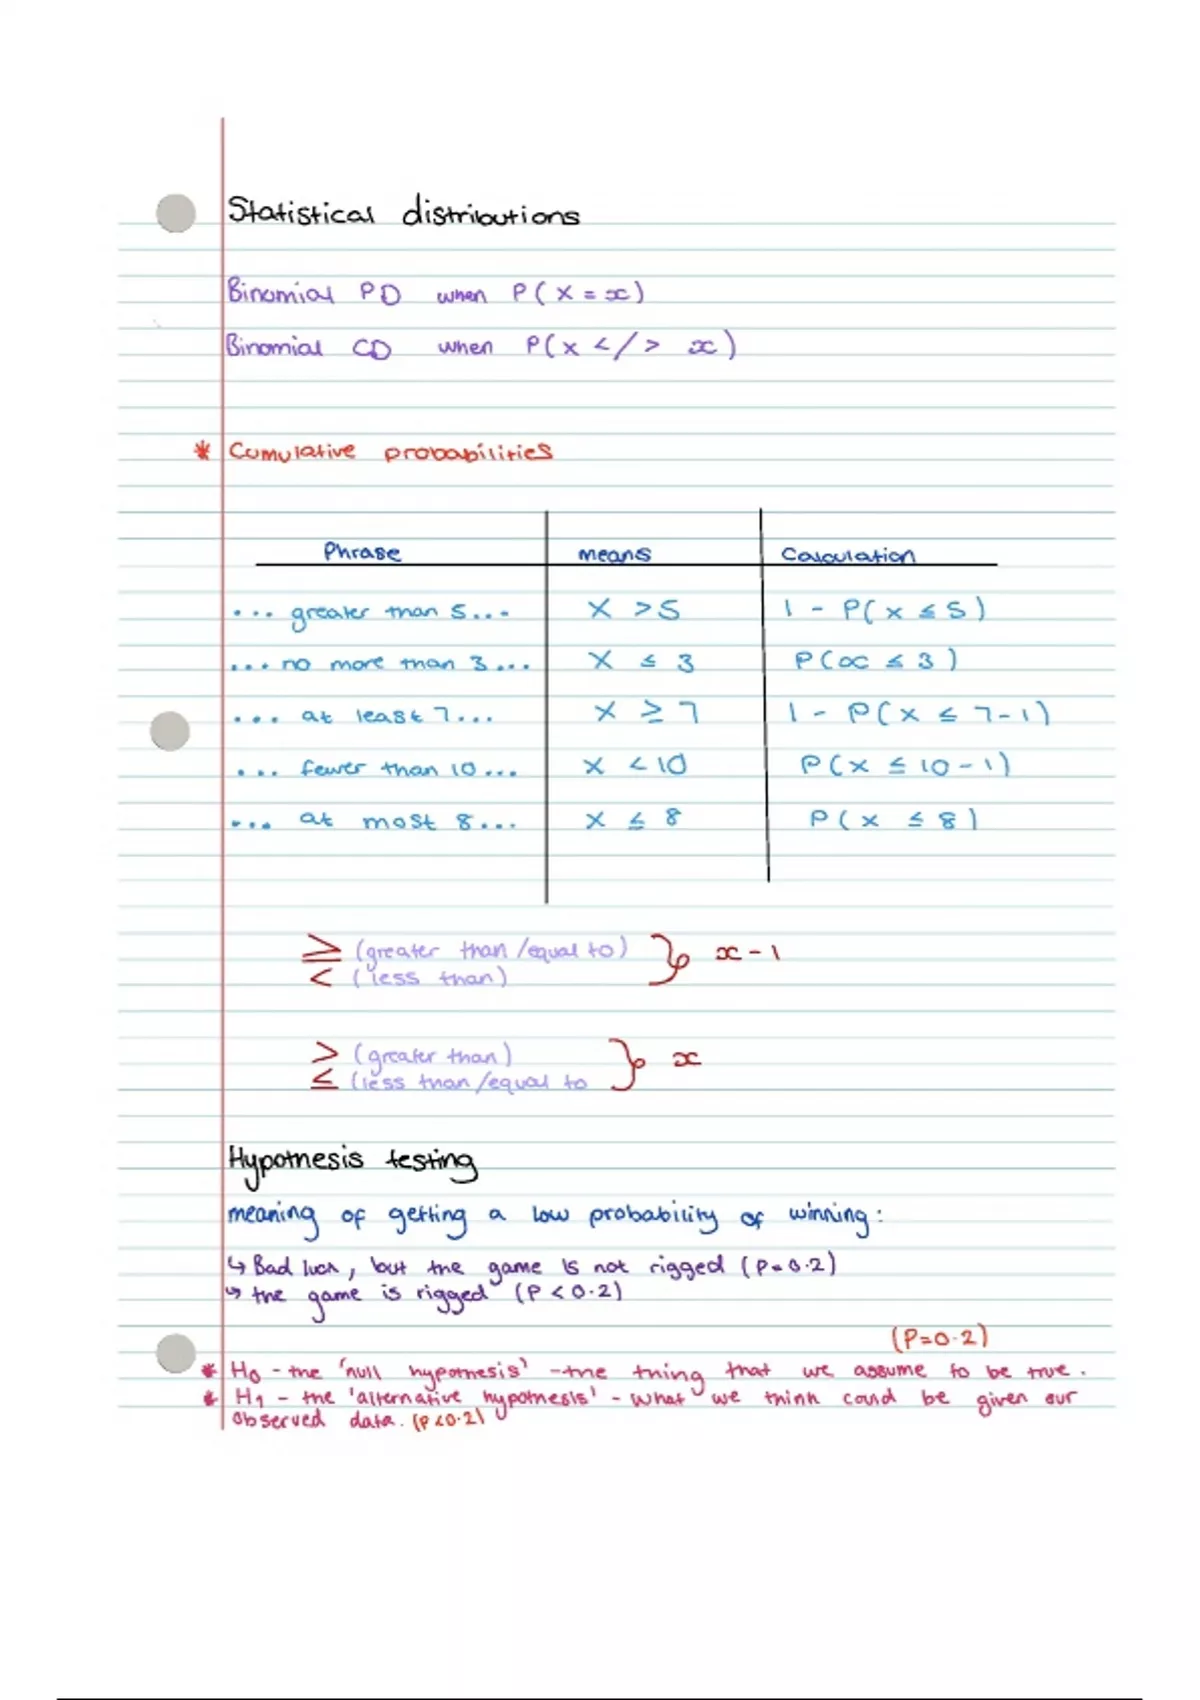 Statistical distributions
Binomial PD when P(X = x)
Binomial CD when P(x </> x)
* Cumulative probabilities
Phrase means Calculation
... greater than 5... X >5 1 - P(x ≤ 5)
... no more than 3... X ≤ 3 P(x ≤ 3)
... at least 7... X ≥ 7 1 - P(x ≤ 7-1)
... fewer than 10... x < 10 P(x ≤ 10-1)
... at most 8... x ≤ 8 P(x ≤ 8)
≥ (greater than/equal to) } x - 1
< (less than)
> (greater than) } x
≤ (less than/equal to
Hypothesis testing
meaning of getting a low probability of winning:
↳ Bad luck, but the game is not rigged (P=0.2)
↳ the game is rigged (P < 0.2)
(P=0.2)
* H₀ - the 'null hypothesis' - the thing that we assume to be true.
* H₁ - the 'alternative hypothesis' - what we think could be given our
observed data. (P<0.2)